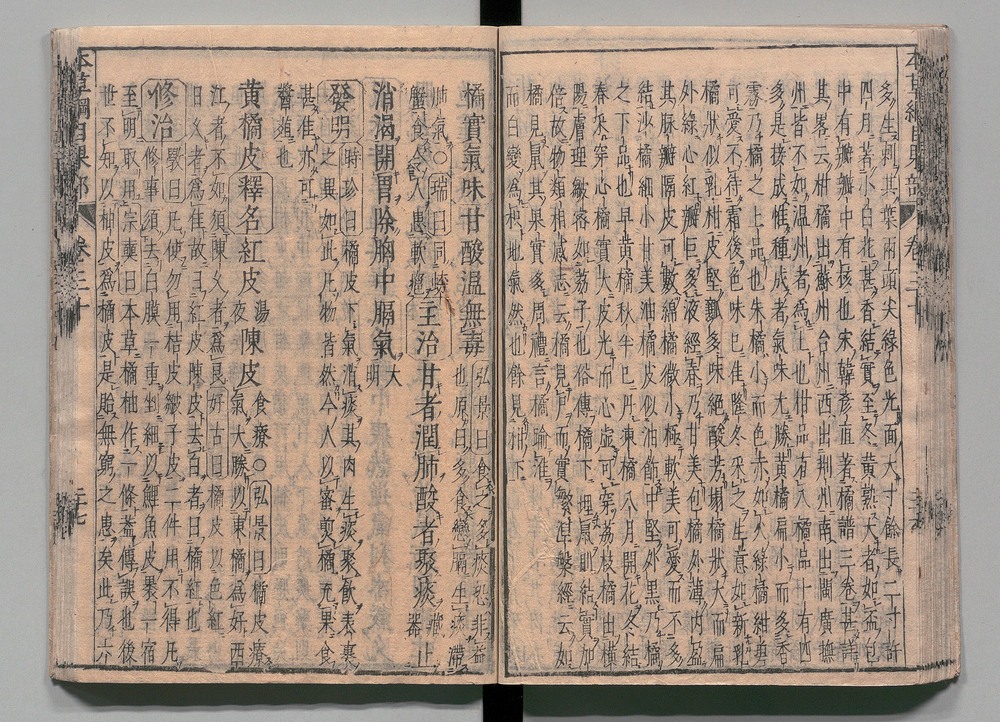 多生刺其葉兩頭尖綠色光面大寸餘長二寸許
四月著小白花甚香結實至冬黃熟大者如盃包
中有瓣瓣中有核也宋韓彥直著橘譜三卷甚詳
其畧云柑橘出蘇州台州西出荆州南出閩廣撫
州皆不如溫州者爲上也柑品有八橘品十有四
多是接成惟種成者氣味尤勝黃橘扁小而多香
霧乃橘之上品也朱橘小而色赤如火綠橘紺碧
可愛不待霜後色味已佳隆冬采之生意如新乳
橘狀似乳柑皮堅瓤多味絕酸芳塌橘狀大而扁
外綠心紅瓣巨多液經春乃甘美包橘外薄內盈
其脉瓣隔皮可數綿橘微小極軟美可愛而不多
結沙橘細小甘美油橘皮似油飾中堅外黑乃橘
之下品也早黃橘秋半已丹凍橘八月開花冬結
春采穿心橘實大皮光而心虛可穿荔枝橘出橫
陽膚理皺密如荔子也俗傳橘下埋鼠則結實加
倍故物類相感志云橘見尸而實繁涅槃經云如
橘見鼠其果實多周禮言橘踰淮
而白變爲枳地氣然也餘見柑下
橘實氣味甘酸溫無毒弘景曰食之多痰恐非益
也原曰多食戀膈生痰滯
肺氣○瑞曰同螃
蟹食令人患軟癰主治甘者潤肺酸者聚痰
消渴開胃除胸中膈氣大明
發明時珍曰橘皮下氣消痰其肉生痰聚飲表裏
之異如此凡物皆然今人以蜜煎橘充果食
甚佳亦可
醬菹也
黃橘皮釋名紅皮湯液陳皮食療○弘景曰橘皮療
氣大勝以東橘爲好西
江者不如須陳久者爲良好古曰橘皮以色紅
日久者爲佳故曰紅皮陳皮去白者曰橘紅也
修治斅曰凡使勿用柚皮皺子皮二件用不得凡
修事須去白膜一重剉細以鯉魚皮裹一宿
至明取用宗奭曰本草橘柚作一條蓋傳誤也後
世不知以柚皮爲橘皮是貽無窮之患矣此乃六